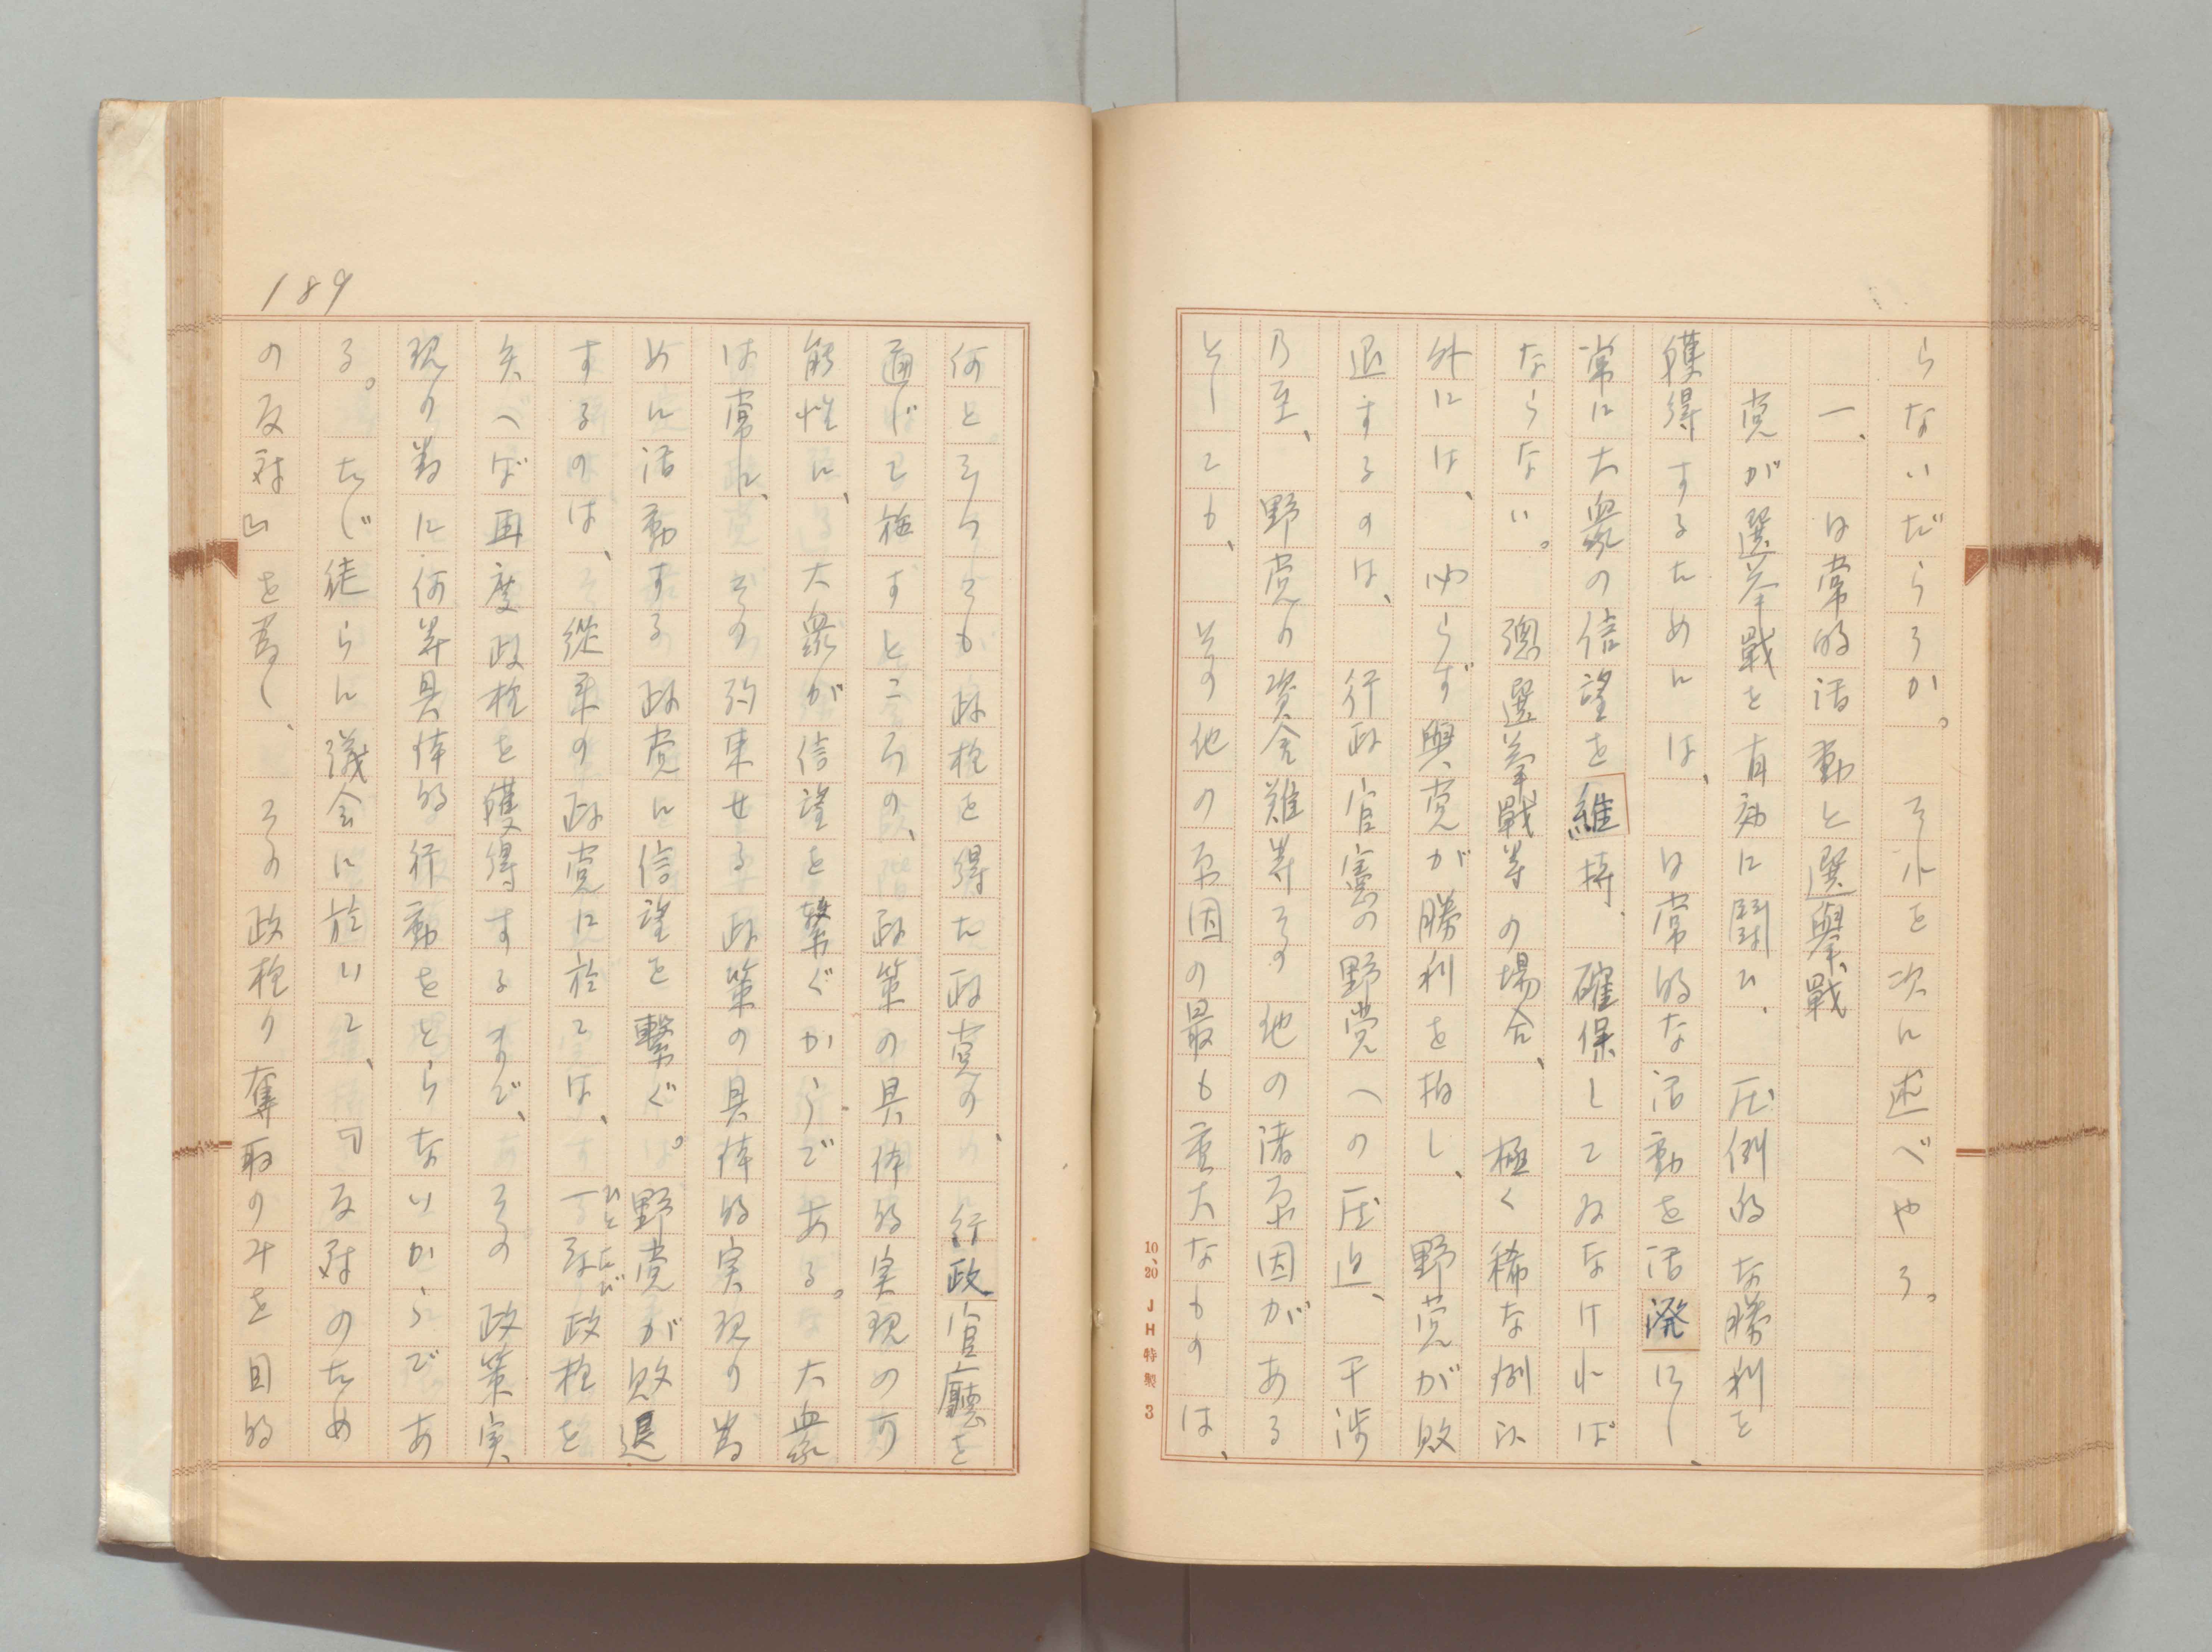 らないだらうか。それを次に述べやう。
一、日常的活動と選擧戰
党が選挙戰を有効に鬪ひ、圧倒的な勝利を
獲得するためには、日常的な活動を活溌にし、
常に大衆の信望を維持、確保してゐなければ
ならない。總選挙戰等の場合、極く稀な例以
外には、必らず與党が勝利を拍し、野党が敗
退するのは、行政官憲の野党への圧迫、干渉
乃至、野党の資金難等その他の諸原因がある
としても、その他の原因の最も重大なものは、
189
何と云つても政权を得た政党の、行政官廳を
通じて施すところの、政策の具体的実現の可
能性に、大衆が信望を繋ぐからである。大衆
は常に、その約束せる政策の具体的実現の為
めに活動する政党に信望を繋ぐ。野党が敗退
するのは、從来の政党に於ては、一度政权を
ひとたび
失へば再度政权を獲得するまで、その政策実
現の為に何等具体的行動をとらないからであ
る。たゞ徒らに議会に於いて、『反対のため
の反対』を為し、その政权の奪取のみを目的
10、20 JH特製 3